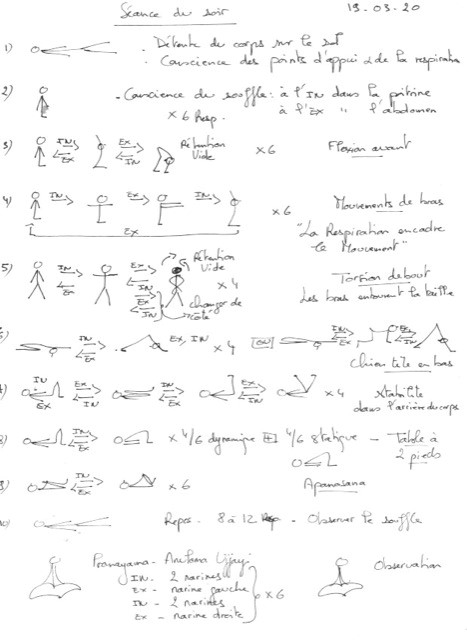 Séance du soir
19.03.20
1) . Détente du corps sur le sol
. Conscience des points d'appui & de la respiration
2) - Conscience du souffle : à l'IN dans la poitrine
x 6 Resp. à l'EX " l'abdomen
3) IN EX EX IN Rétention Vide x 6 Flexion avant
4) IN EX IN x 6 Mouvements de bras
EX "La Respiration encadre
le Mouvement"
5) IN EX EX IN Rétention Vide x 4 Torsion debout
EX IN changer de côté Les bras entourent la taille
IN EX EX, IN x 4 OU IN EX EX IN
Chien tête en bas
IN EX EX IN IN EX EX IN x 4
dans l'arrière du corps
IN EX x 4/6 dynamique + 4/6 statique - Table à
2 pieds
IN EX x 6 Apanasana
10) Repos - 8 à 12 Resp - Observer le souffle
Pranayama - Anuloma Ujjayi
IN - 2 narines
EX - narine gauche
IN - 2 narines
EX - narine droite
x 6
Observation